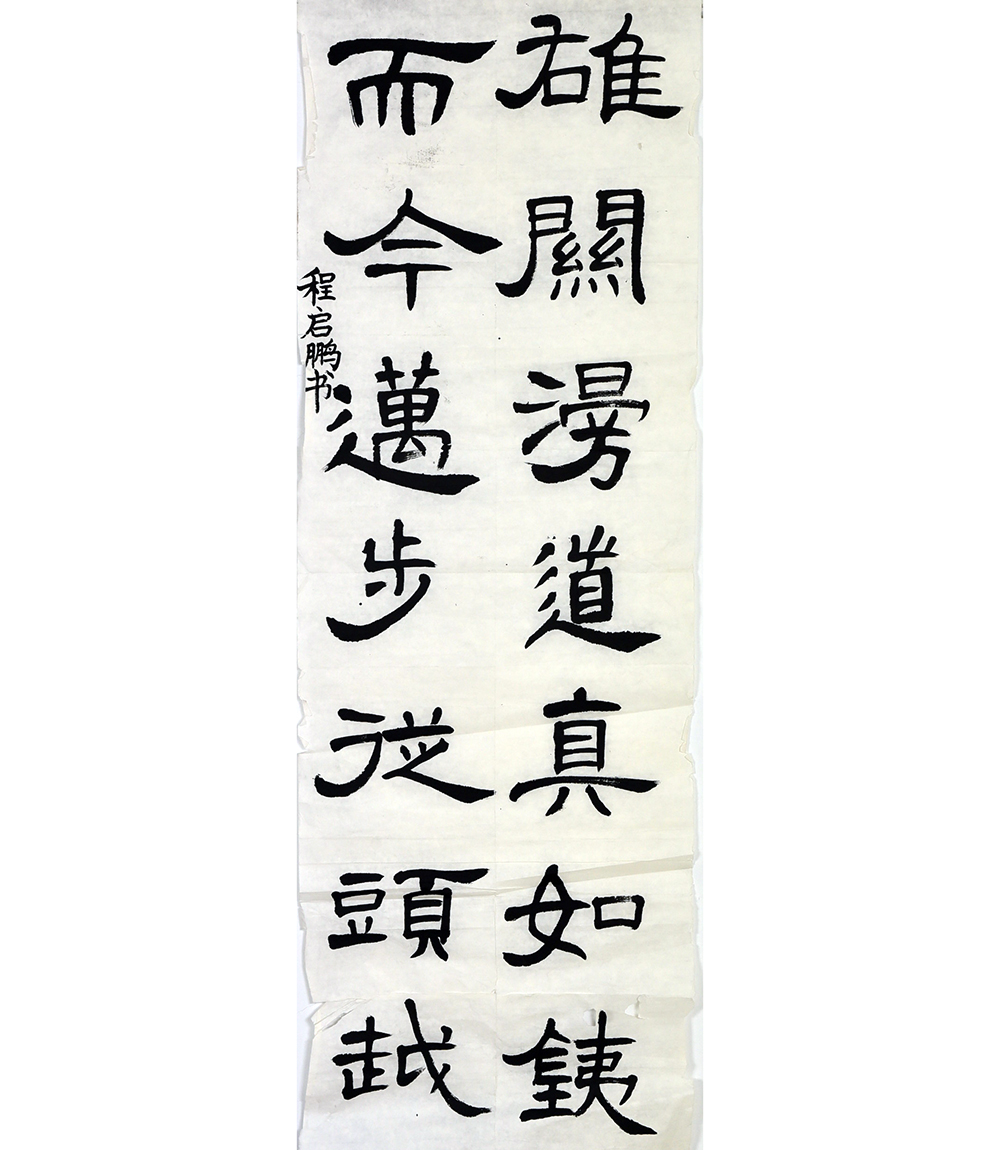 雄關漫道真如銕
而今邁步從頭越
程启鹏书